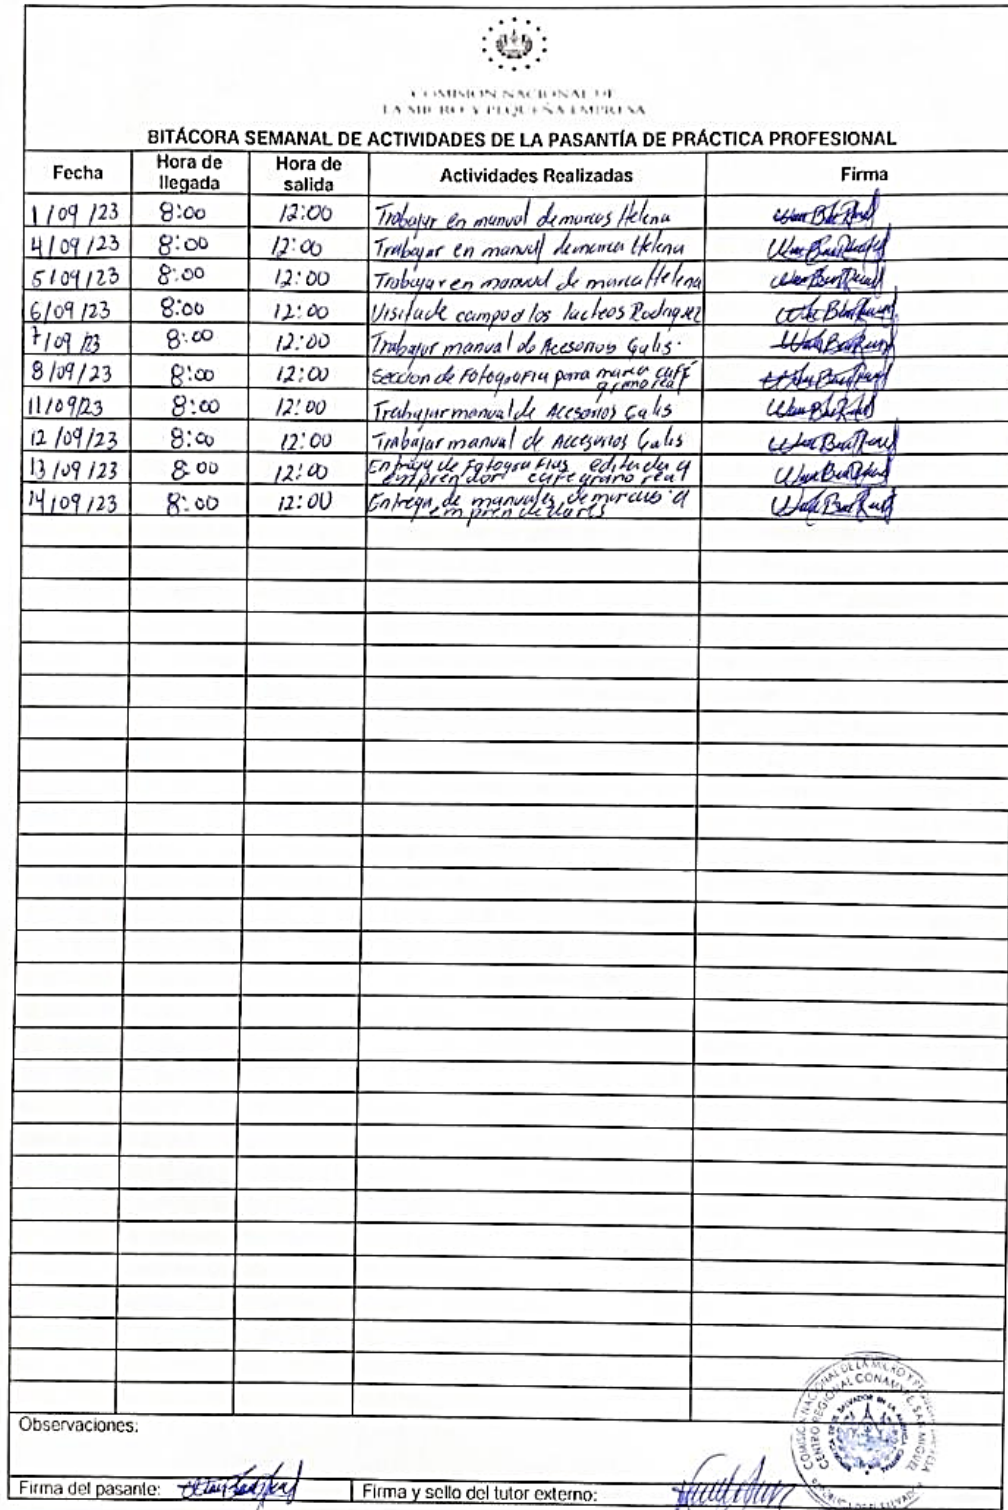 COMISIÓN NACIONAL DE
LA MICRO Y PEQUEÑA EMPRESA
BITÁCORA SEMANAL DE ACTIVIDADES DE LA PASANTÍA DE PRÁCTICA PROFESIONAL
Fecha Hora de llegada Hora de salida Actividades Realizadas Firma
1/09/23 8:00 12:00 Trabajar en manual de marcas Helena
4/09/23 8:00 12:00 Trabajar en manual de marca Helena
5/09/23 8:00 12:00 Trabajar en manual de marca Helena
6/09/23 8:00 12:00 Visita de campo a los lacteos Rodriguez
7/09/23 8:00 12:00 Trabajar manual de Accesorios Galis.
8/09/23 8:00 12:00 Seccion de Fotografia para marca café
grano real
11/09/23 8:00 12:00 Trabajar manual de Accesorios Galis
12/09/23 8:00 12:00 Trabajar manual de Accesorios Galis
13/09/23 8:00 12:00 Entrega de Fotografias editadas a
emprendor cafe grano real
14/09/23 8:00 12:00 Entrega de manuales de marcas a
emprendedores
Observaciones:
Firma del pasante: Firma y sello del tutor externo:
CENTRO REGIONAL CONAMYPE, SAN MIGUEL